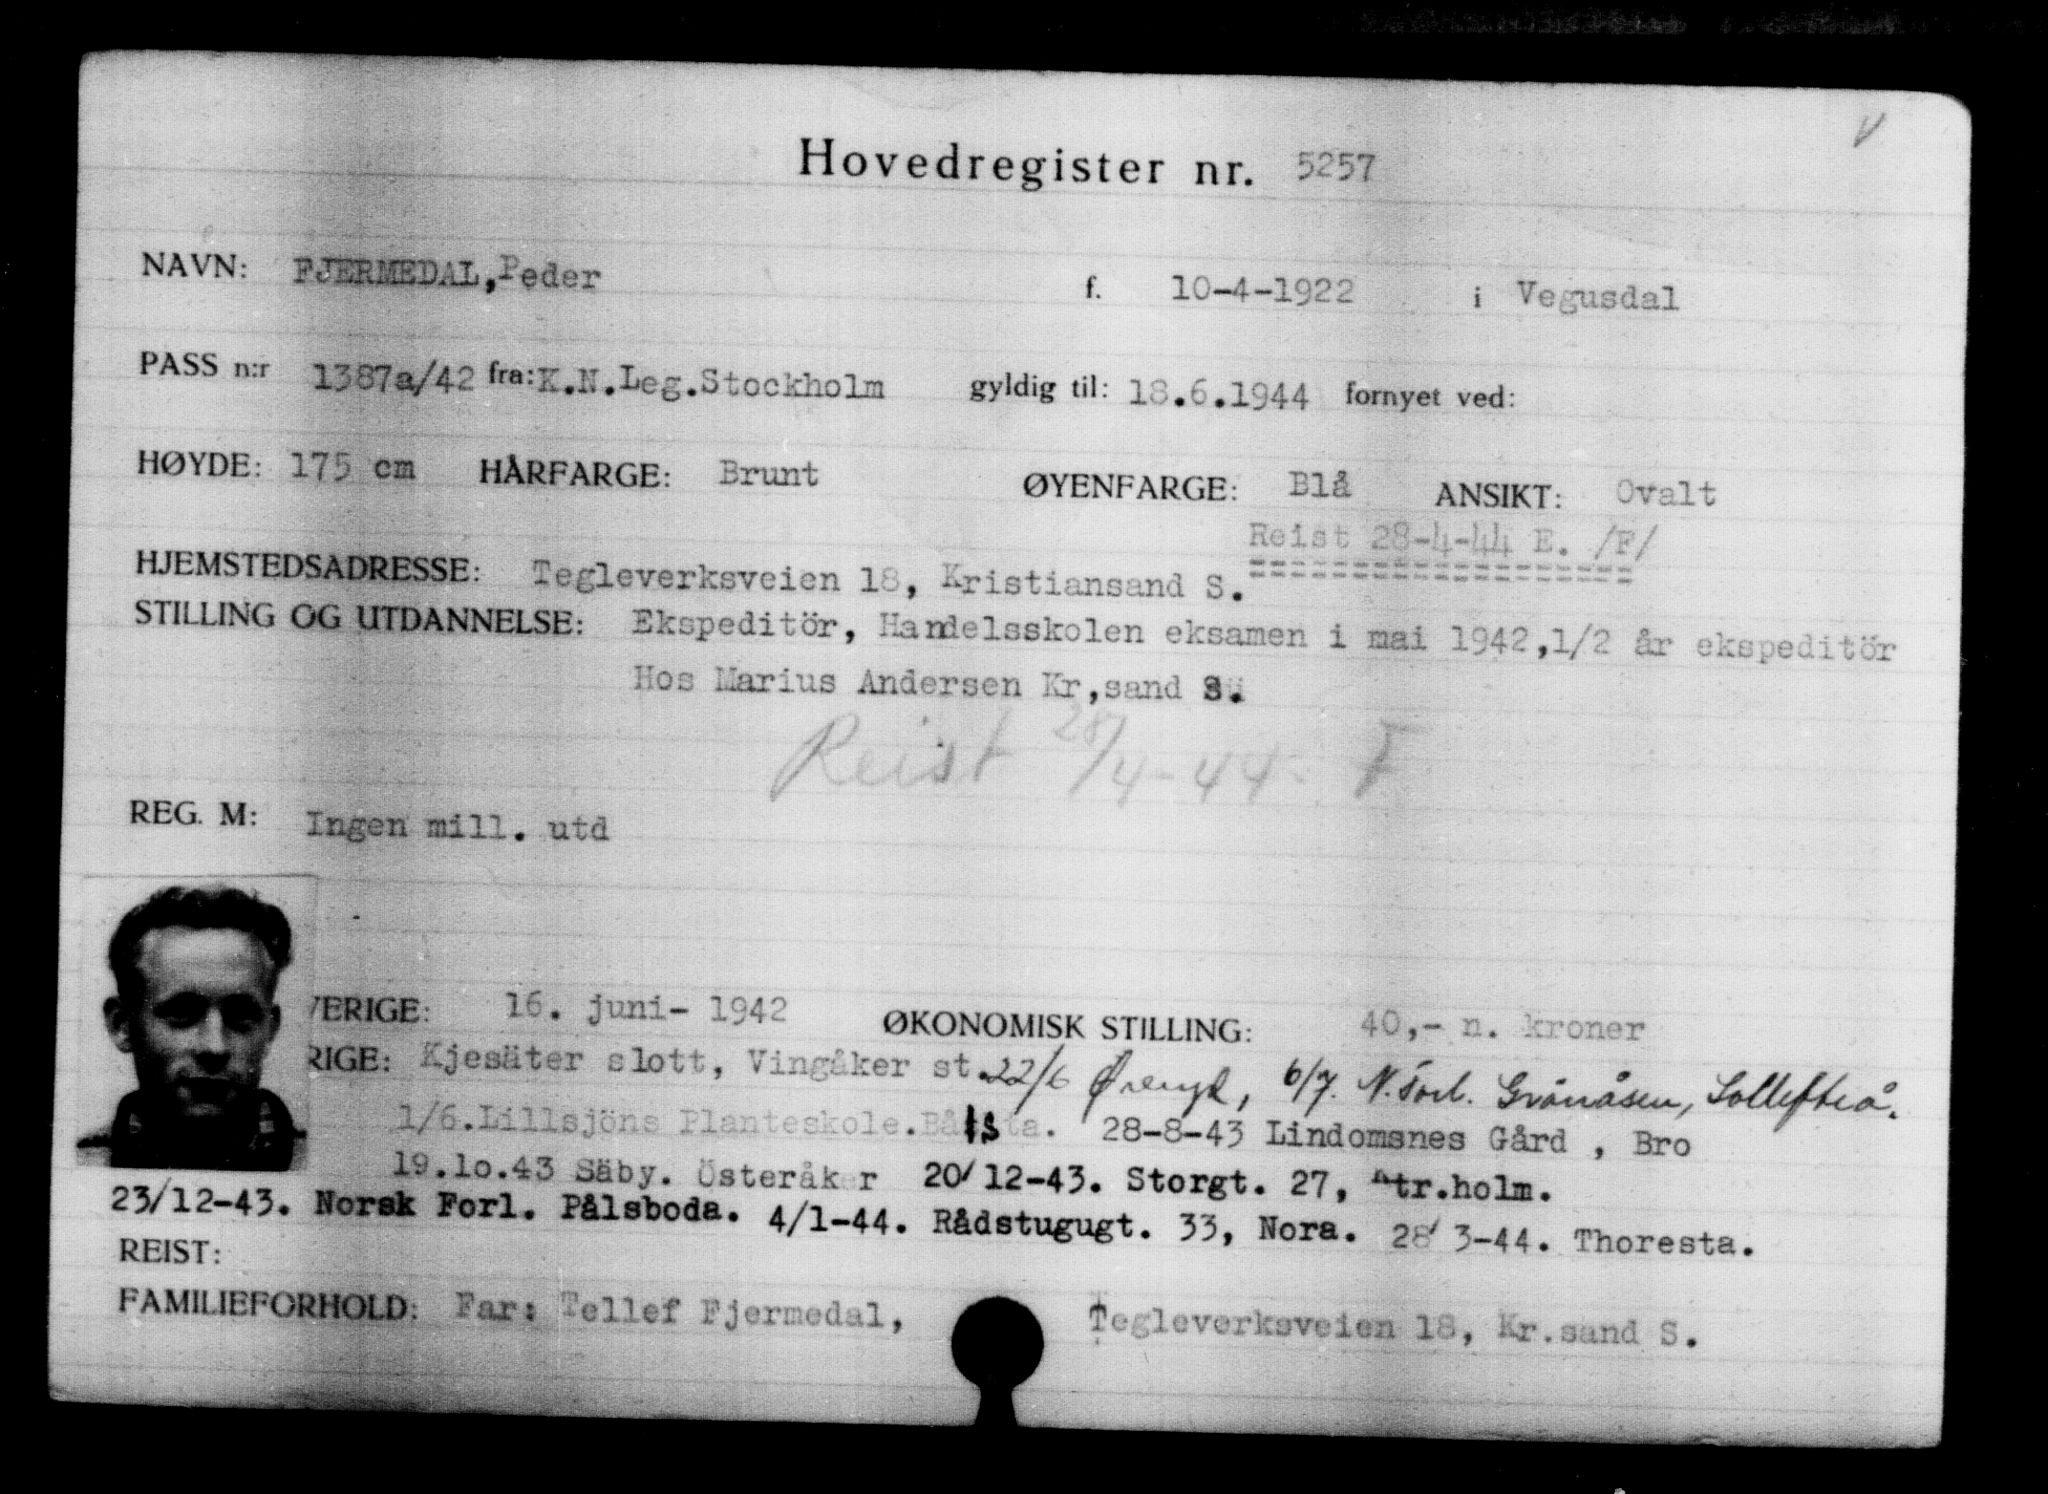 Hovedregister nr. 5257
NAVN: FJERMEDAL, Peder f. 10-4-1922 i Vegusdal
PASS n:r 1387a/42 fra: K.N.Leg.Stockholm gyldig til: 18.6.1944 fornyet ved:
HØYDE: 175 cm HÅRFARGE: Brunt ØYENFARGE: Blå ANSIKT: Ovalt
Reist 28-4-44 E. /F/
HJEMSTEDSADRESSE: Tegleverksveien 18, Kristiansand S.
STILLING OG UTDANNELSE: Ekspeditör, Handelsskolen eksamen i mai 1942,1/2 år ekspeditör
Hos Marius Andersen Kr,sand S.
Reist 28/4-44. F
REG. M: Ingen mill. utd
VERIGE: 16. juni- 1942 ØKONOMISK STILLING: 40,- n. kroner
RIGE: Kjesäter slott, Vingåker st. 22/6 6/7. Grönåsen, Sollefteå.
1/6.Lillsjöns Planteskole. Bålsta. 28-8-43 Lindomsnes Gård , Bro
19.10.43 Säby. Österåker 20/12-43. Storgt. 27, tr.holm.
23/12-43. Norsk Forl. Pålsboda. 4/1-44. Rådstugugt. 33, Nora. 28/3-44. Thoresta.
REIST:
FAMILIEFORHOLD: Far: Tellef Fjermedal, Tegleverksveien 18, Kr.sand S.